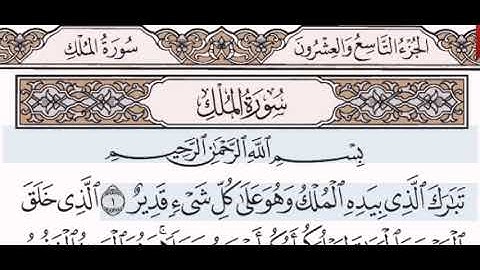 الجزء التاسع والعشرون
سورة الملك
سُورَةُ المُلْكِ
بِسْمِ ٱللَّهِ ٱلرَّحْمَٰنِ ٱلرَّحِيمِ
تَبَٰرَكَ ٱلَّذِى بِيَدِهِ ٱلْمُلْكُ وَهُوَ عَلَىٰ كُلِّ شَىْءٍ قَدِيرٌ ١ ٱلَّذِى خَلَقَ